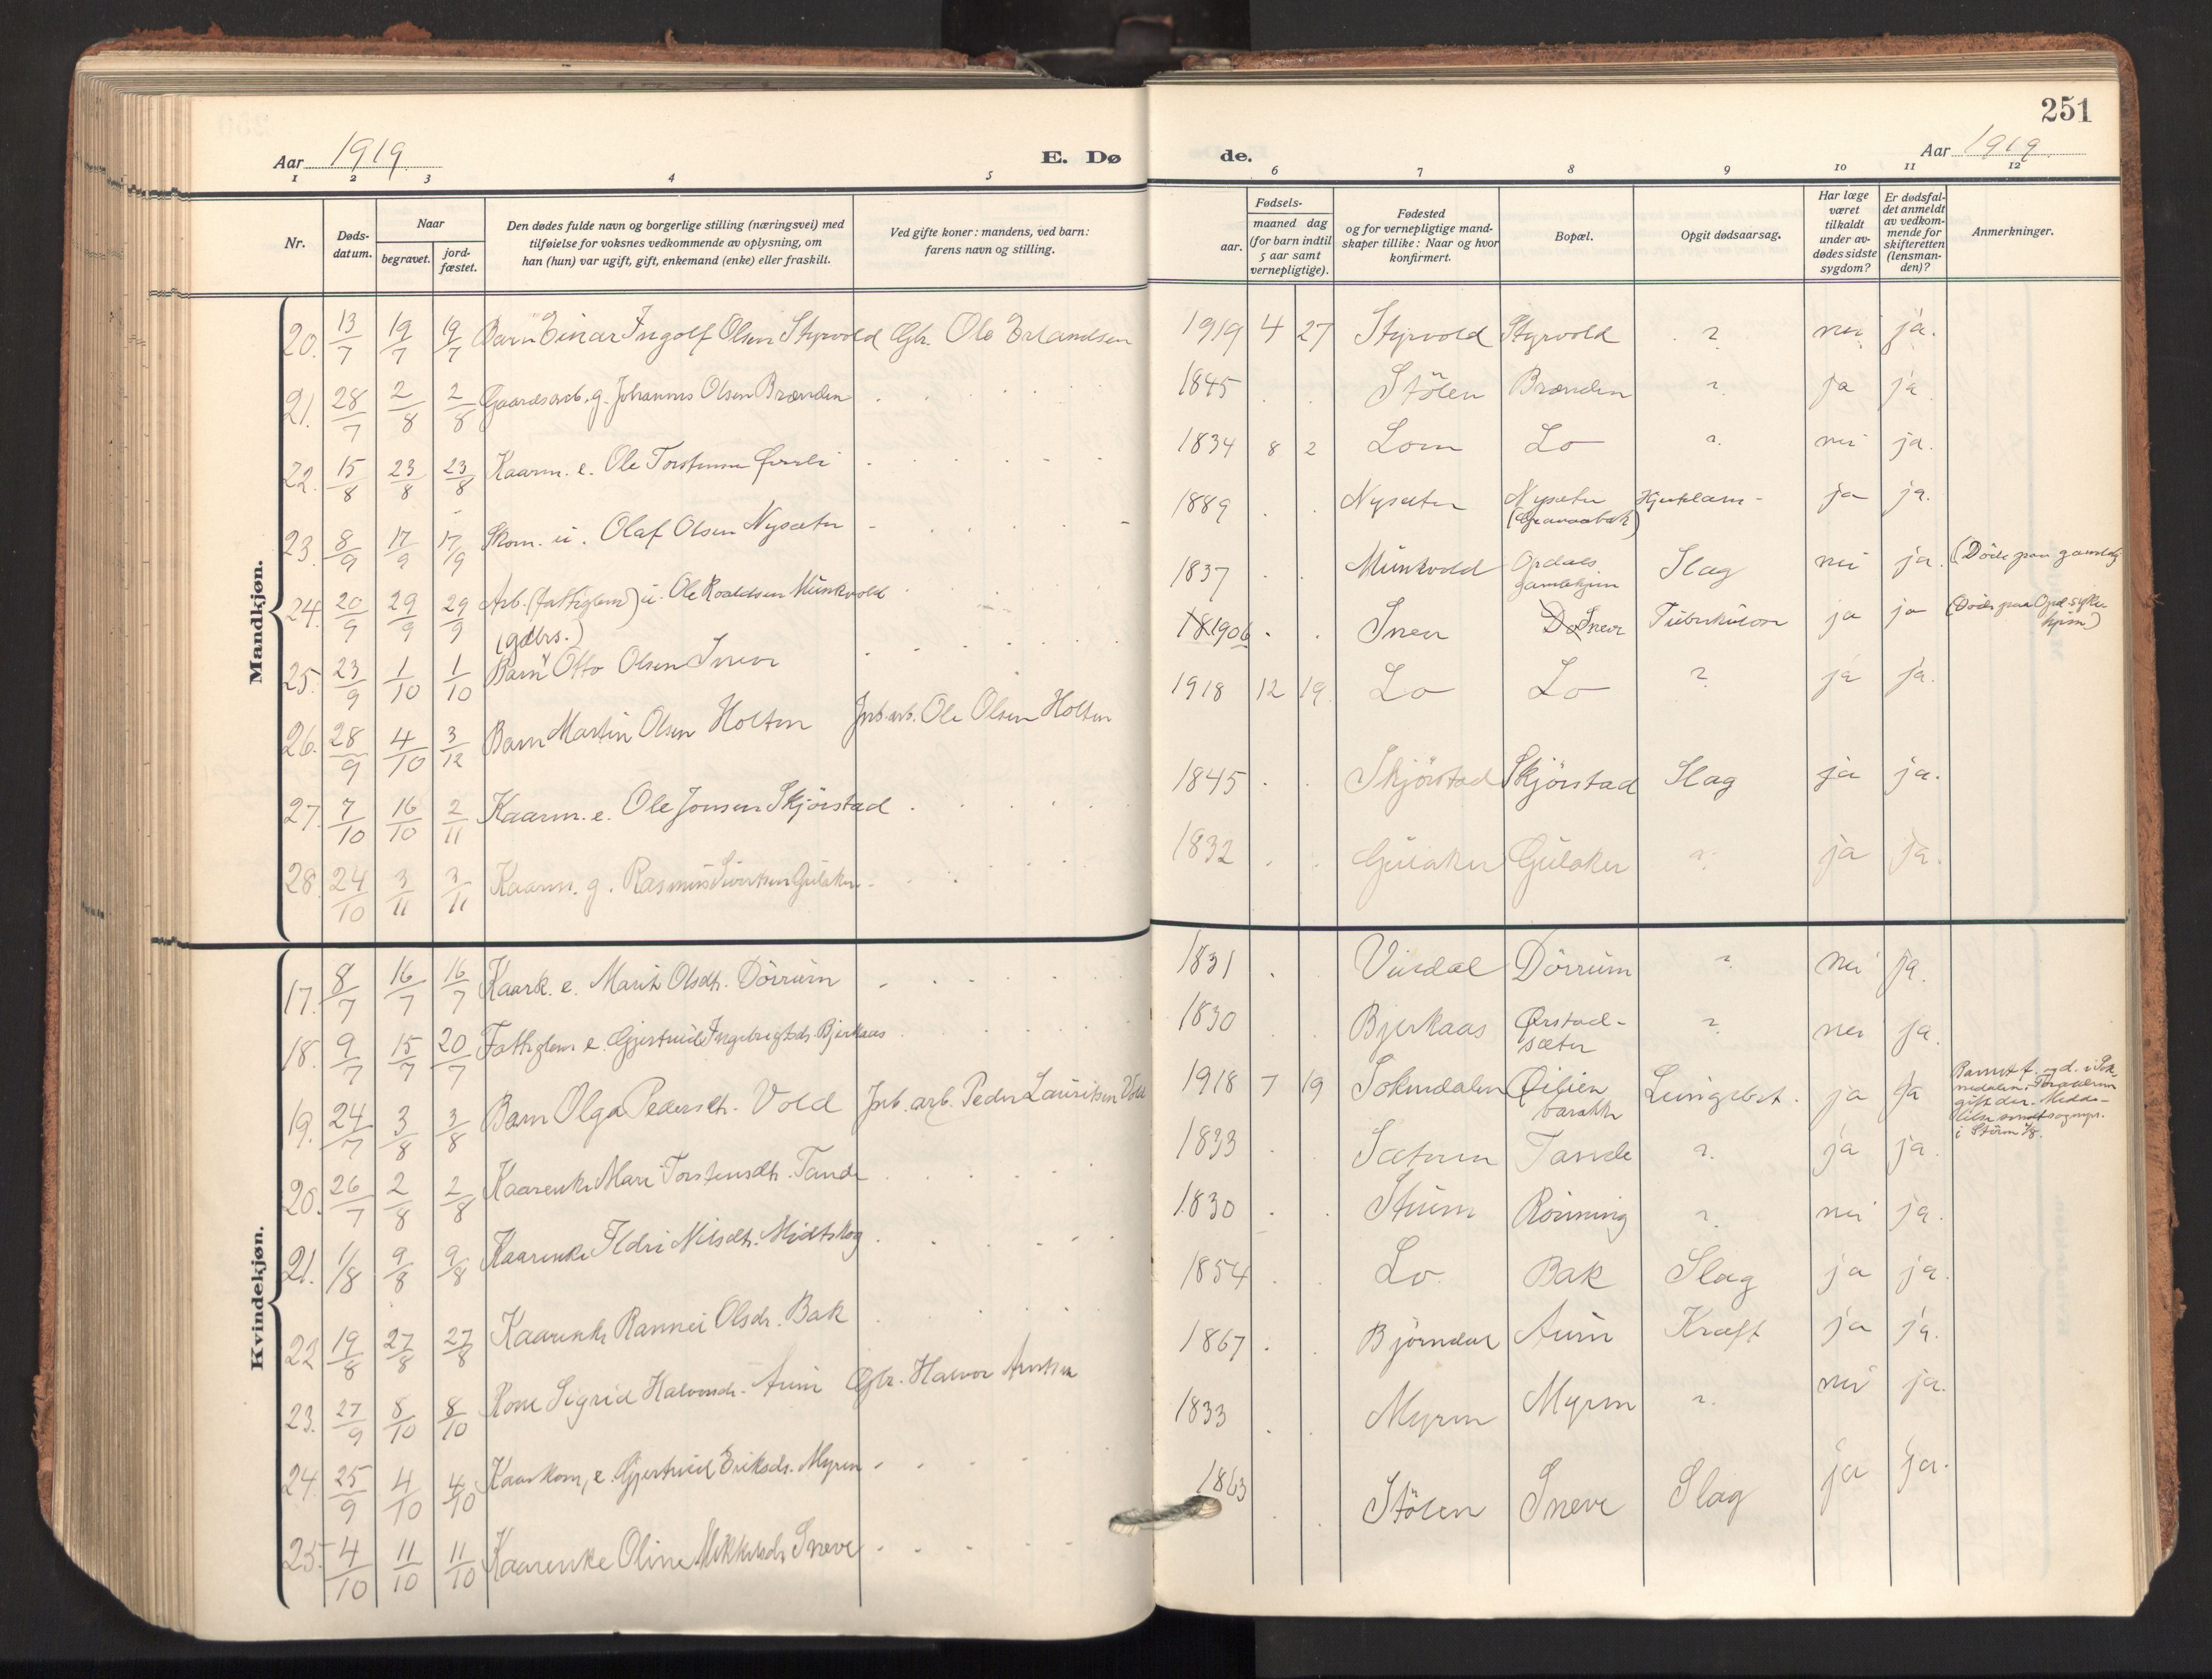 251
Aar 1919
E. Dø de.
Aar 1919
1 2 3 4 5 6 7 8 9 10 11 12
Nr.
Døds-
datum.
Naar
begravet.
jord-
fæstet.
Den dødes fulde navn og borgerlige stilling (næringsvei) med
tilføielse for voksnes vedkommende av oplysning, om
han (hun) var ugift, gift, enkemand (enke) eller fraskilt.
Ved gifte koner: mandens, ved barn:
farens navn og stilling.
Fødsels-
aar.
maaned dag
(for barn indtil
5 aar samt
vernepligtige).
Fødested
og for vernepligtige mand-
skaper tillike: Naar og hvor
konfirmert.
Bopæl.
Opgit dødsaarsag.
Har læge
været
tilkaldt
under av-
dødes sidste
sygdom?
Er dødsfal-
det anmeldt
av vedkom-
mende for
skifteretten
(lensman-
den)?
Anmerkninger.
Mandkjøn.
20. 13/7 19/7 19/7 Barn Einar Ingolf Olsen Styrvold Gbr. Ole Erlandsen 1919 4 27 Styrvold Styrvold ? nei ja.
21. 28/7 2/8 2/8 Gaardsarb. g. Johannes Olsen Brænden 1845 Stölen Brænden ? ja ja
22. 15/8 23/8 23/8 Kaarm. e. Ole Torstensen 1834 8 2 Lom Lo ? nei ja.
23. 8/9 17/9 17/9 Skom. u. Olaf Olsen Nysæter 1889 Nysæter Nysæter ja ja.
24. 20/9 29/9 29/9 Arb. (fattiglem) u. Ole Roaldsen Munkvold 1837 Munkvold Opdals gamlehjem Slag nei ja.
(gdbrs.)
25. 23/9 1/10 1/10 Barn Otto Olsen Sneve 1906 Sneve Sneve Tuberkulose ja ja (Döde paa Opd. sykehjem)
26. 28/9 4/10 3/12 Barn Martin Olsen Holten Jnb.arb. Ole Olsen Holten 1918 12 19 Lo Lo ? ja ja.
27. 7/10 16/10 2/11 Kaarm. e. Ole Jonsen Skjörstad 1845 Skjörstad Skjörstad Slag ja ja.
28. 24/10 3/11 3/11 Kaarm. g. Rasmus Sivertsen Gulaker 1832 Gulaker Gulaker ? ja ja.
Kvindekjøn.
17. 8/7 16/7 16/7 Kaark. e. Marit Olsdt. Dörrum 1831 Vindal Dörrum ? nei ja.
18. 9/7 15/7 20/7 Fattiglem e. Gjertrud Ingebrigtsdt. Bjerkaas 1830 Bjerkaas Ørstad-
sæter ? nei ja.
19. 24/7 3/8 3/8 Barn Olga Pedersdt. Vold Jnb. arb. Peder Lauritsen Vold 1918 7 19 Soknedalen barakke Lungebet. ja ja
20. 26/7 2/8 2/8 Kaarenke Mari Torstensdt. Tande 1833 Sætrum Tande ? ja ja.
21. 1/8 9/8 9/8 Kaarenke Ildri Nilsdt. Midtskog 1830 Stuen Rönning ? nei ja.
22 19/8 27/8 27/8 Kaarenke Rannei Olsdt. Bak 1854 Lo Bak Slag ja ja.
23. 27/9 8/10 8/10 Kone Sigrid Halvorsdt. Aune Gbr. Halvor Arntsen 1867 Björndal Aune Kræft ja ja.
24. 25/9 4/10 4/10 Kaarkone, e. Gjertrud Eriksdt. Myren 1833 Myren Myren ? nei ja.
25. 4/10 11/10 11/10 Kaarenke Oline Mikkelsdt. Sneve 1863 Stölen Sneve Slag ja ja.